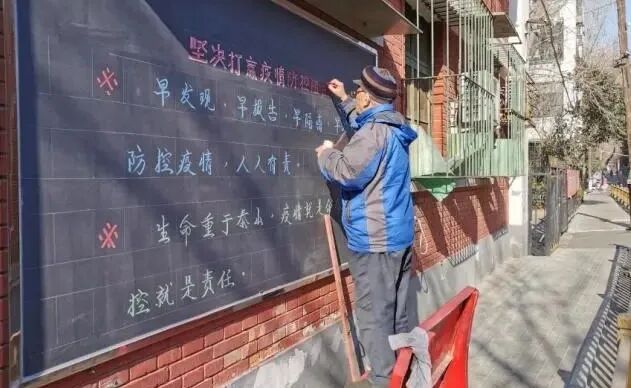 坚决打赢疫情防控
※ 早发现，早报告，早隔离，早
防控疫情，人人有责。
※ 生命重于泰山，疫情就是
控就是责任。